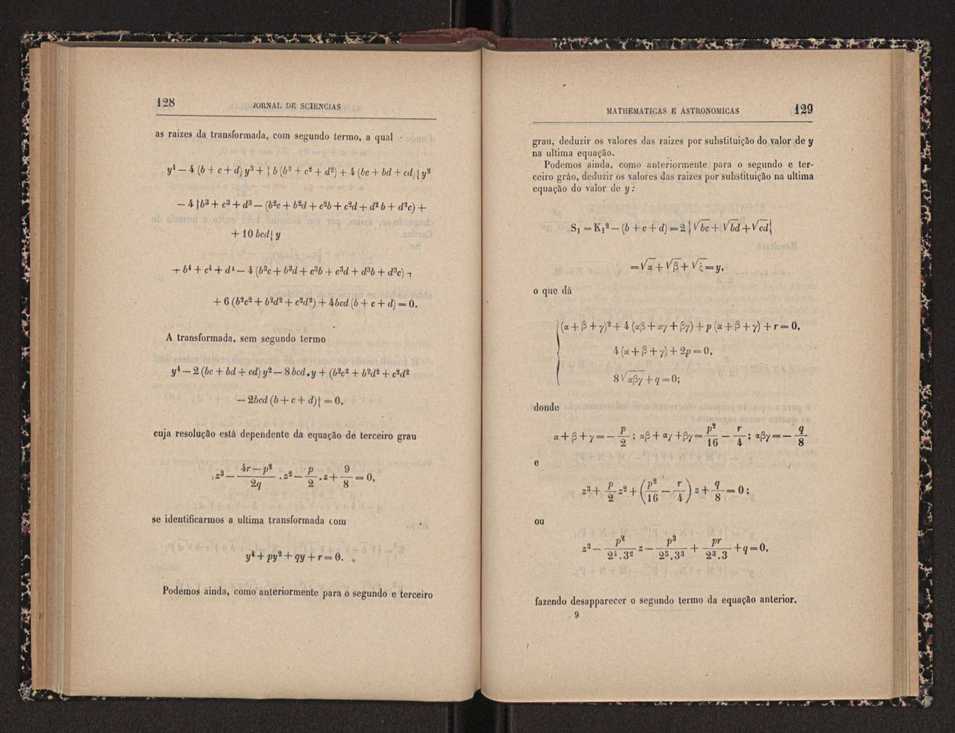 128
JORNAL DE SCIENCIAS
as raizes da transformada, com segundo termo, a qual
y⁴ — 4 (b + c + d) y³ + { b (b² + c² + d²) + 4 (bc + bd + cd) { y²
— 4 { b³ + c³ + d³ — (b²c + b²d + c²b + c²d + d²b + d²c) +
+ 10 bcd { y
+ b⁴ + c⁴ + d⁴ — 4 (b³c + b³d + c³b + c³d + d³b + d³c) +
+ 6 (b²c² + b²d² + c²d²) + 4bcd (b + c + d) = 0.
A transformada, sem segundo termo
y⁴ — 2 (bc + bd + cd) y² — 8 bcd . y + (b²c² + b²d² + c²d²
— 2bcd (b + c + d) { = 0,
cuja resolução está dependente da equação de terceiro grau
z³ — (4r — p²)/2q . z² — p/2 . z + 9/8 = 0,
se identificarmos a ultima transformada com
y⁴ + py² + qy + r = 0.
Podemos ainda, como anteriormente para o segundo e terceiro
MATHEMATICAS E ASTRONOMICAS
129
grau, deduzir os valores das raizes por substituição do valor de y
na ultima equação.
Podemos ainda, como anteriormente para o segundo e ter-
ceiro gráo, deduzir os valores das raizes por substituição na ultima
equação do valor de y:
S₁ = K₁² — (b + c + d) = 2 { √bc + √bd + √cd {
= √α + √β + √ζ = y,
o que dá
(α + β + γ)² + 4 (αβ + αγ + βγ) + p (α + β + γ) + r = 0,
4 (α + β + γ) + 2p = 0,
8 √αβγ + q = 0;
donde
α + β + γ = — p/2 ; αβ + αγ + βγ = p²/16 — r/4 ; αβγ = — q/8
e
z³ + p/2 z² + (p²/16 — r/4) z + q/8 = 0;
ou
z³ — p²/2⁴.3² z — p³/2⁵.3³ + pr/2³.3 + q = 0,
fazendo desapparecer o segundo termo da equação anterior.
9